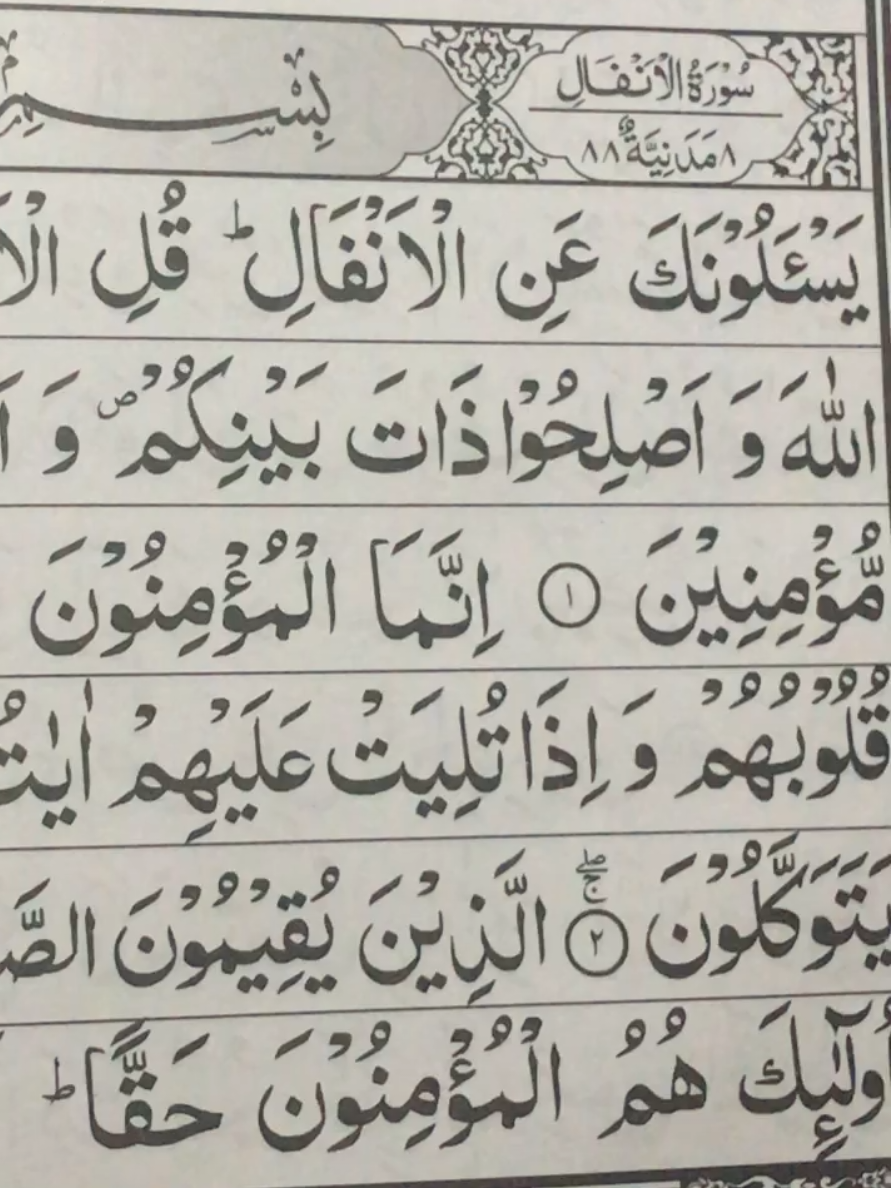 سُوْرَةُ الْاَنْفَالِ
٨ مَدَنِيَّةٌ ٨٨
بِسْمِ
يَسْـَٔلُوْنَكَ عَنِ الْاَنْفَالِ ؕ قُلِ
اللّٰهَ وَ اَصْلِحُوْا ذَاتَ بَيْنِكُمْ ۪ وَ
مُّؤْمِنِيْنَ ① اِنَّمَا الْمُؤْمِنُوْنَ
قُلُوْبُهُمْ وَ اِذَا تُلِيَتْ عَلَيْهِمْ
يَتَوَكَّلُوْنَ ② الَّذِيْنَ يُقِيْمُوْنَ
اُولٰٓئِكَ هُمُ الْمُؤْمِنُوْنَ حَقًّا ؕ